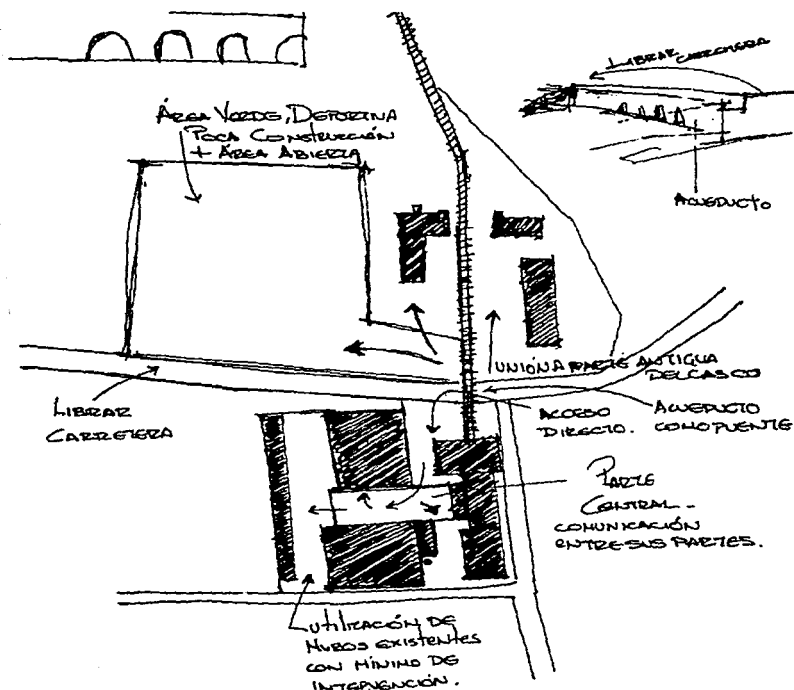 LIBRAR CARRETERA
ACUEDUCTO
ÁREA VERDE, DEPORTIVA
POCA CONSTRUCCIÓN
+ ÁREA ABIERTA
UNIÓN A PARTE ANTIGUA
DEL CASCO
LIBRAR
CARRETERA
ACCESO
DIRECTO.
ACUEDUCTO
COMO PUENTE
PARTE
CENTRAL -
COMUNICACIÓN
ENTRE SUS PARTES.
UTILIZACIÓN DE
MUROS EXISTENTES
CON MÍNIMO DE
INTERVENCIÓN.